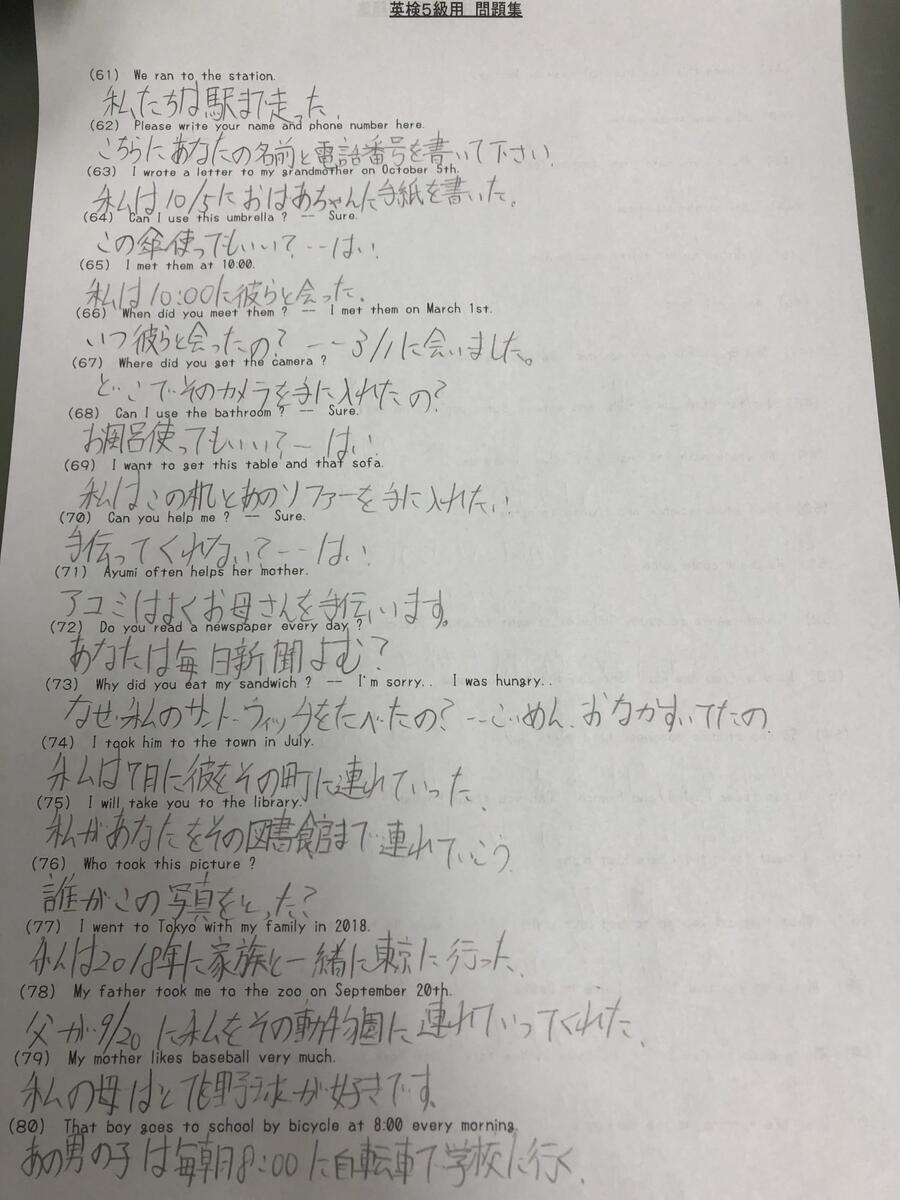 英検5級用 問題集
(61) We ran to the station.
私たちは駅まで走った.
(62) Please write your name and phone number here.
こちらにあなたの名前と電話番号を書いて下さい.
(63) I wrote a letter to my grandmother on October 5th.
私は10/5におばあちゃんに手紙を書いた。
(64) Can I use this umbrella ? -- Sure.
この傘使ってもいい? --はい
(65) I met them at 10:00.
私は10:00に彼らと会った.
(66) When did you meet them ? -- I met them on March 1st.
いつ彼らと会ったの? -- 3/1に会いました。
(67) Where did you get the camera ?
どこでそのカメラを手に入れたの?
(68) Can I use the bathroom ? -- Sure.
お風呂使ってもいい?-- はい
(69) I want to get this table and that sofa.
私はこの机とあのソファーを手に入れたい
(70) Can you help me ? -- Sure.
手伝ってくれない?--はい
(71) Ayumi often helps her mother.
アユミはよくお母さんを手伝います。
(72) Do you read a newspaper every day ?
あなたは毎日新聞よむ?
(73) Why did you eat my sandwich ? -- I'm sorry.. I was hungry..
なぜ私のサンドウィッチをたべたの? --ごめん、おなかすいてたの
(74) I took him to the town in July.
私は7月に彼をその町に連れていった.
(75) I will take you to the library.
私があなたをその図書館まで連れていこう
(76) Who took this picture ?
誰がこの写真をとった?
(77) I went to Tokyo with my family in 2018.
私は2018年に家族と一緒に東京に行った.
(78) My father took me to the zoo on September 20th.
父が9/20に私をその動物園に連れていってくれた.
(79) My mother likes baseball very much.
私の母はとても野球が好きです。
(80) That boy goes to school by bicycle at 8:00 every morning.
あの男の子は毎朝8:00に自転車で学校に行く.